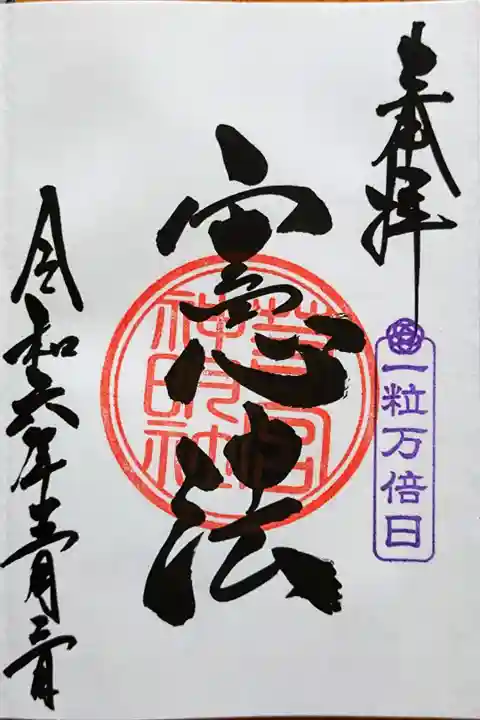 奉拝
一粒万倍日
憲法
芝宮神明神社
令和六年五月三日